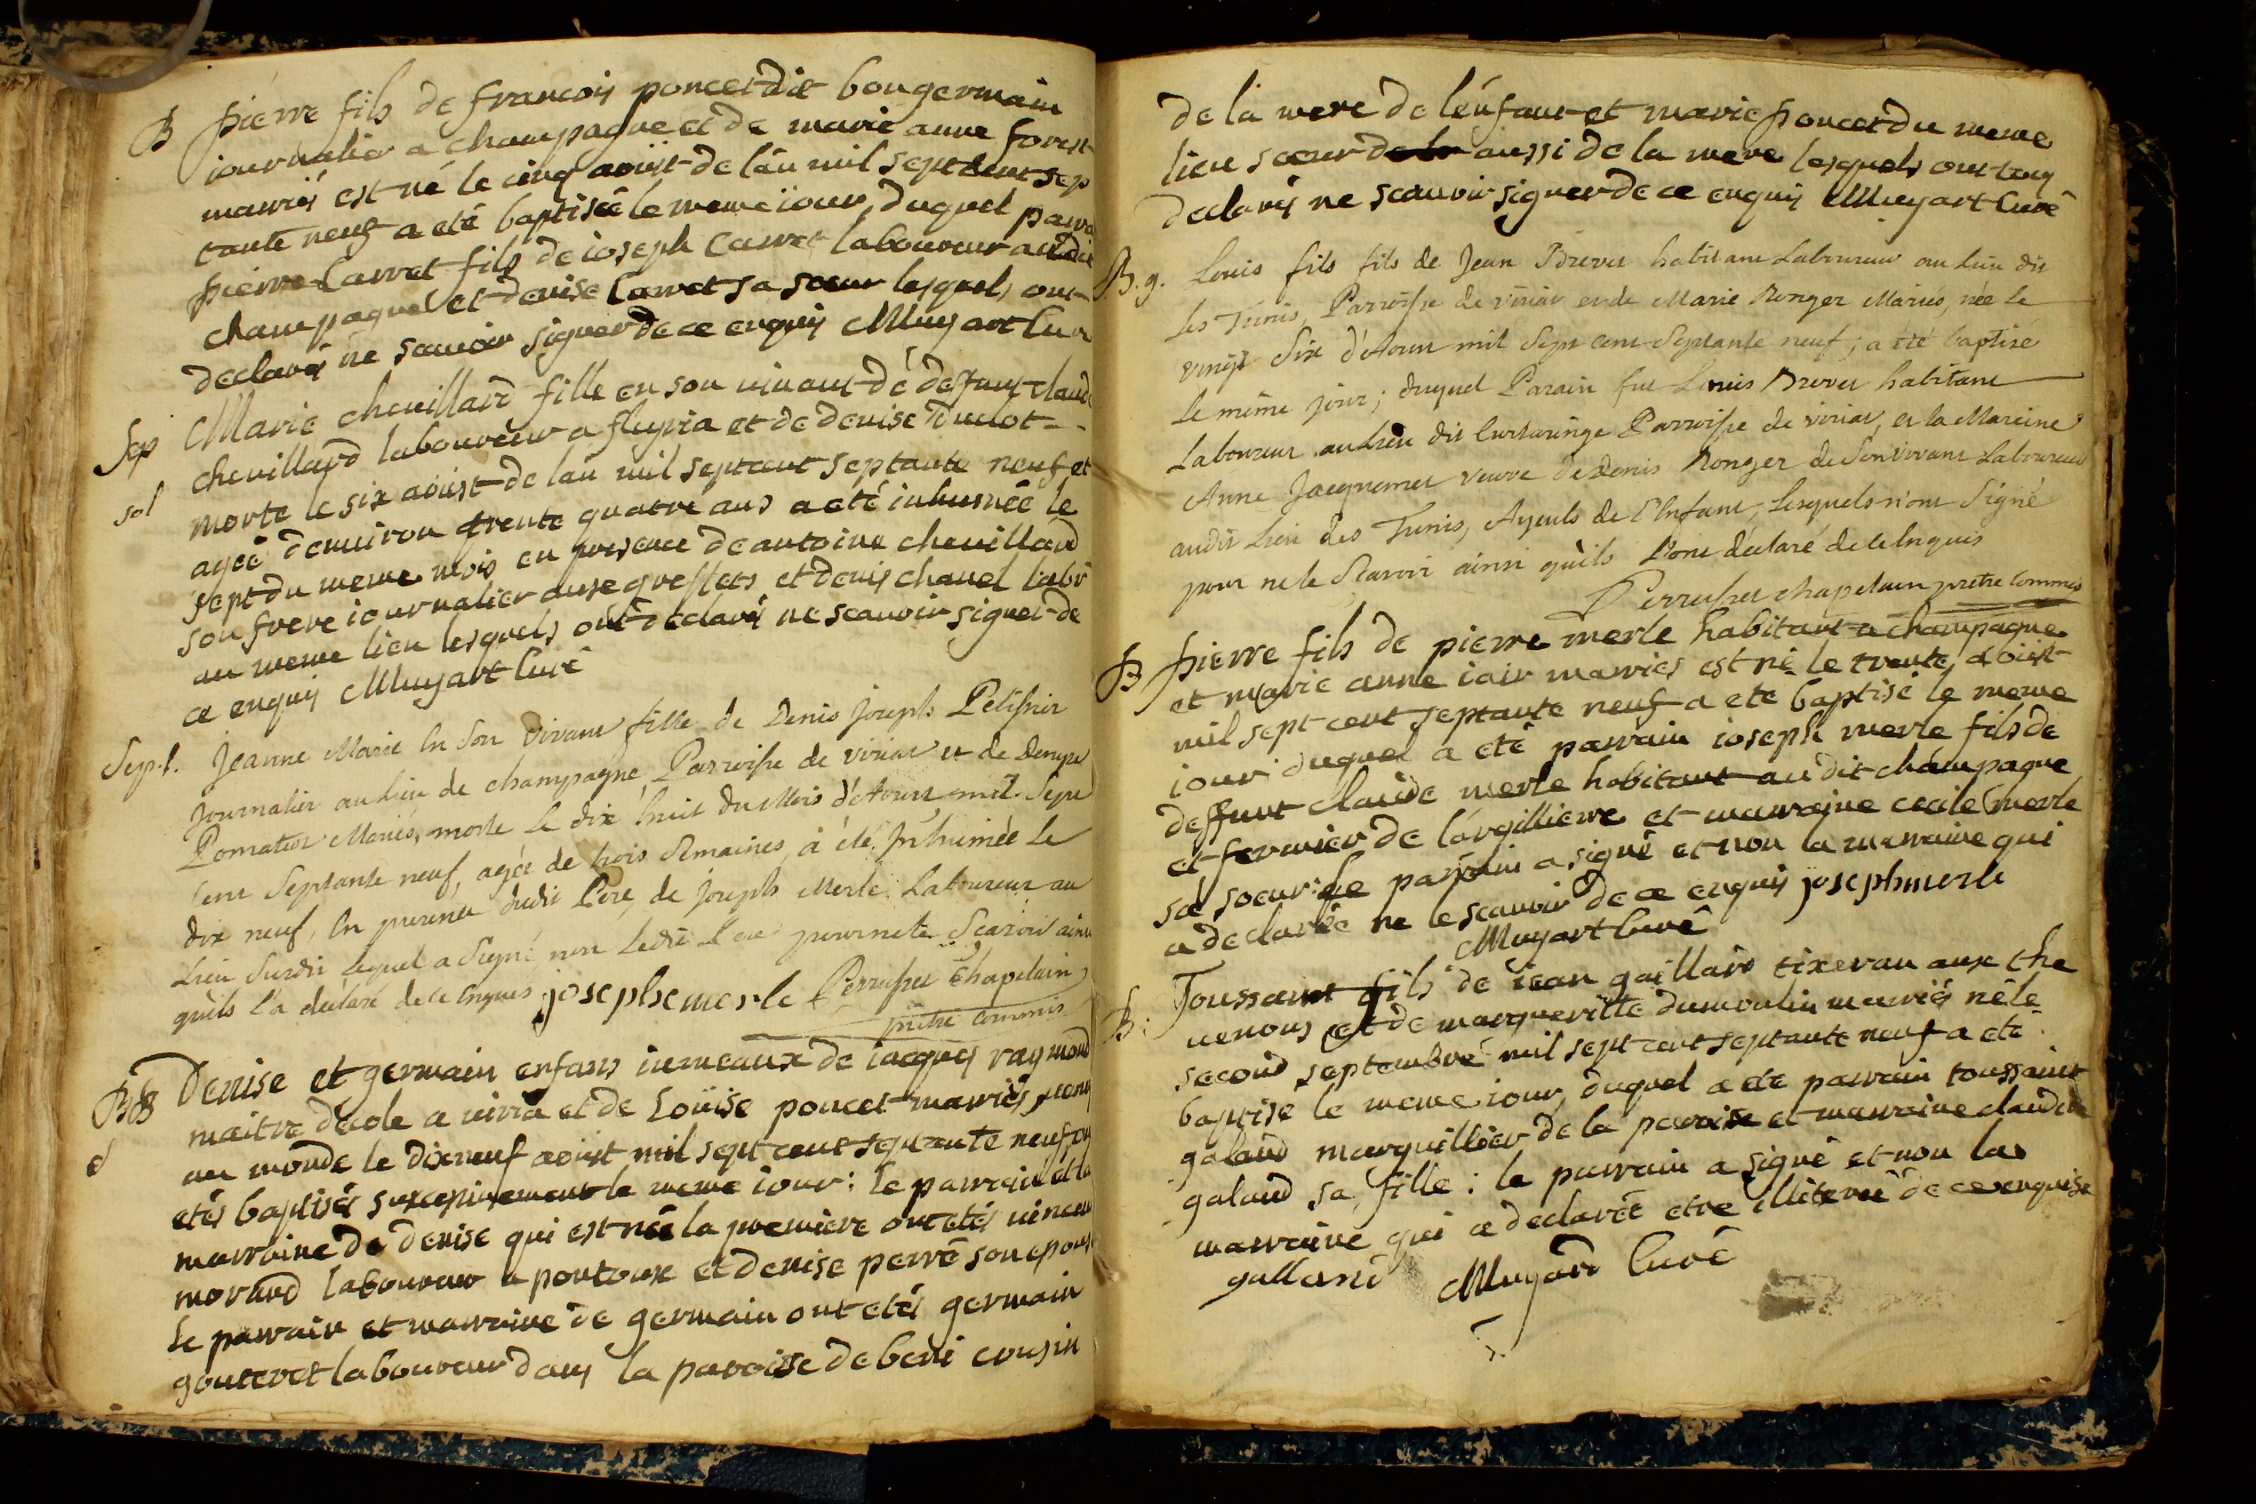 B pierre fils de francois poncet dit bongermain
iournalier a champagne et de marie anne forest
mariés est né le cinq aoûst de l'an mil sept cent sep
tante neuf a eté baptisée le meme iour, duquel parra
pierre Carret fils de ioseph Carret laboureur audit
champagne et denise Carret sa sœur lesquels ont
declarés ne scauoir signer de ce enquis Muyart Cur
Sep Marie cheuillard fille en son uiuant de deffunt claude
cheuillard laboureur a fleyria et de denise Buclot
sol morte le six aoüst de l'an mil sept cent septante neuf et
agée d'enuiron trente quatre ans a eté inhumée le
sept du meme mois en presence de antoine cheuillard
son frere iournalier aux greffets et denis chanel labr
au meme lieu lesquels ont declarés ne scauoir signer de
ce enquis Muyart Curé
Sep. l. Jeanne Marie En Son Vivant fille de Denis Joseph Pelissier
Journalier au Lieu de champagne, Parroisse de viriat et de Denyse
Pomatior Mariés, morte Le dix huit du Mois d'Aoust mil Sept
Cent Septante neuf, agée de trois Semaines, à été Inhumée Le
dix neuf, En presence dudit Pere, de Joseph Merle Laboureur au
Lieu Susdit Lequel a Signé, non Ledit Pere pour ne le Scavoir ainsi
qu'ils l'a declaré de ce Enquis josephe merle Perruset Chapelain
prêtre commis
Denise et germain enfans iumeaux de iacques raymond
maitre decole a uiria et de Loüise poncet mariés,
au monde le dixneuf aoüst mil sept cent septante neuf
etés baptisés successiuement le meme iour: le parrain et la
marraine de denise qui est née la premiere ont etés uincent
morand laboureur a pontoux et denise perré son epouse
le parrain et marraine de germain ont etés germain
gouteret laboureur dans la paroisse de beni cousin
de la mere de l'enfant et marie poncet du meme
lieu sœur aussi de la mere lesquels ont tous
declarés ne scauoir signer de ce enquis Muyart Curé
B. g. Louis fils fils de Jean Brevet habitant Laboureur au Lieu dit
Les Tunis, Parroisse de viriat et de Marie Ronger Mariés, née Le
vingt Six d'Aoust mil Sept Cent Septante neuf; a été baptisé
Le même jour; duquel Parain fut Louis Brevet habitant
Laboureur au Lieu dit Curtaringe Parroisse de viriat, et la Mareine
Anne Jacquemet veuve de Denis Ronger de Son vivant Laboureur
audit Lieu des Tunis, Ayeuls de l'Enfant, Lesquels n'ont Signé
pour ne le Scavoir ainsi qu'ils L'ont declaré de ce Enquis
Perruset chapelain prêtre Commis
B pierre fils de pierre merle habitant a champagne
et marie anne iair mariés est né le trente aoüst
mil sept cent septante neuf a eté baptisé le meme
iour duquel a eté parrain ioseph merle fils de
deffunt claude merle habitant au dit champagne
et fermier de l'argilliere et marraine cecile merle
sa soeur: le parrain a signé et non la marraine qui
a declarée ne le scauoir de ce enquis joseph merle
Muyart Curé
B: Toussaint fils de iean gaillard tixeran aux the
uenons et de margueritte dumoulin mariés né le
second septembre mil sept cent septante neuf a eté
baptisé le meme iour, duquel a eté parrain toussaint
galand marguillier de la paroisse et marraine claudine
galand sa fille: le parrain a signé et non la
marraine qui a declarée etre illiterée de ce enquise
galland Muyard Curé